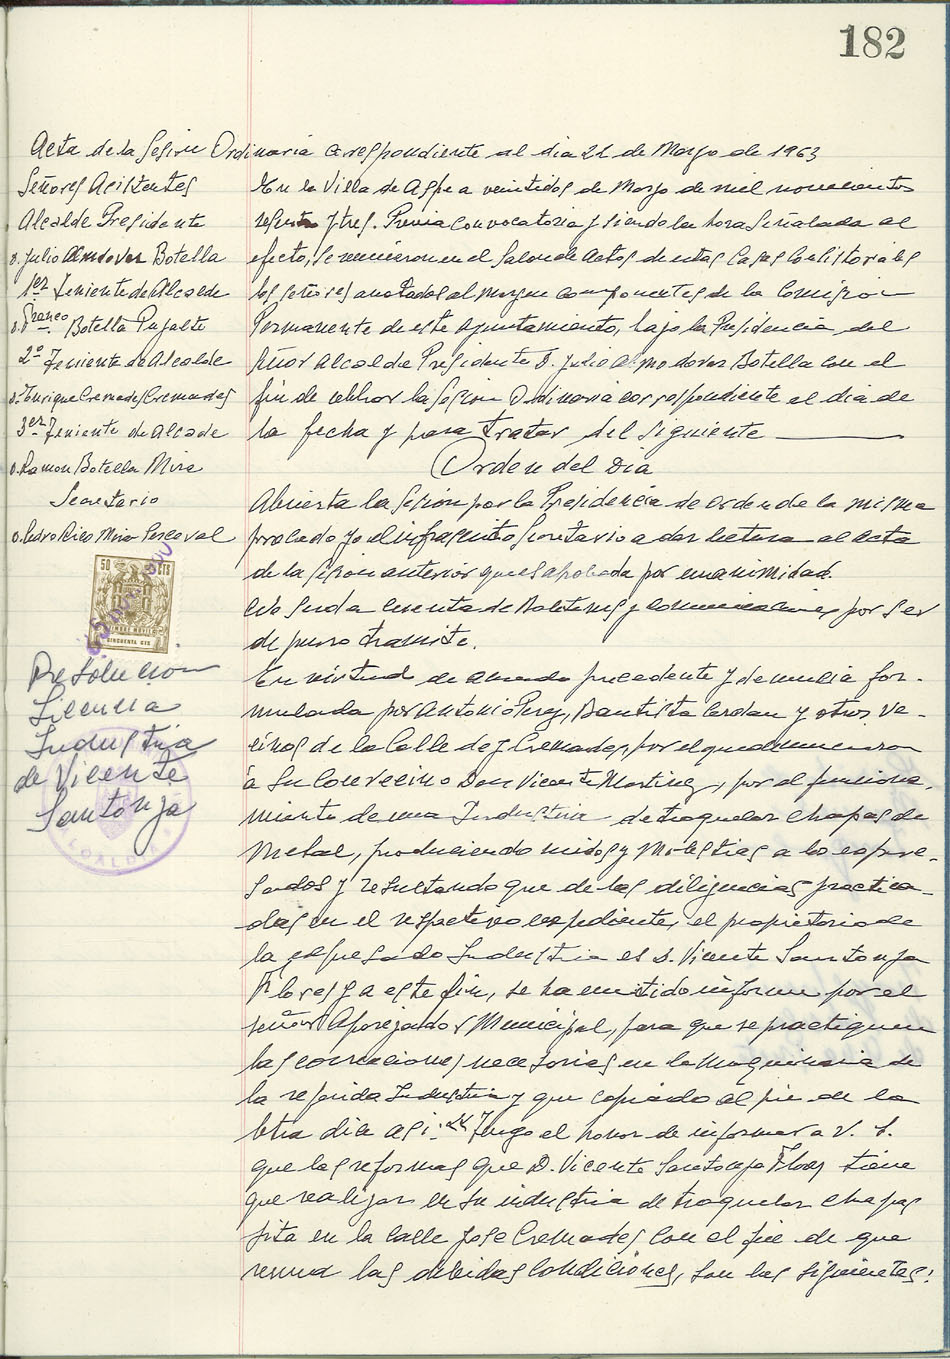 182
Acta de la Sesion Ordinaria correspondiente al dia 22 de Marzo de 1963
Señores Asistentes
Alcalde Presidente
D. Julio Almodovar Botella
1er Teniente de Alcalde
D. Franco Botella Pujalte
2º Teniente de Alcalde
D. Enrique Cremades Cremades
3er Teniente de Alcalde
D. Ramon Botella Mira
Secretario
D. Pedro Rico Mira Perceval
50 CTS
TIMBRE MOVIL
CINCUENTA CTS
Resolucion
Licencia
Industria
de Vicente
Santonja
ALCALDIA
En la Villa de Aspe a veintidos de Marzo de mil novecientos
sesenta y tres. Previa convocatoria y siendo la hora Señalada al
efecto, se reunieron en el Salon de Actos de estas Casas Consistoriales
los señores anotados al margen componentes de la Comision
Permanente de este Ayuntamiento, bajo la Presidencia del
Señor Alcalde Presidente D. Julio Almodovar Botella con el
fin de celebrar la Sesion Ordinaria correspondiente al dia de
la fecha y para tratar del siguiente
Orden del Dia
Abierta la Sesion por la Presidencia de orden de la misma
procedo yo el infrascrito Secretario a dar lectura al acta
de la sesion anterior que es aprobada por unanimidad.
No se da cuenta de Boletines y comunicaciones por ser
de puro tramite.
En virtud de acuerdo precedente y denuncia for-
mulada por Antonio Perez, Bautista Cerdan y otros ve-
cinos de la Calle de J. Cremades, por el que denuncian
a su convecino Don Vicente Martinez, por el funciona-
miento de una Industria de troquelar chapas de
Metal, produciendo ruidos y Molestias a los expre-
sados y resultando que de las diligencias practica-
das en el respectivo expediente, el propietario de
la expresada Industria es D. Vicente Santonja
Flores y a este fin, se ha emitido informe por el
señor Aparejador Municipal, para que se practiquen
las correcciones necesarias en la maquinaria de
la referida Industria y que copiado al pie de la
letra dice asi: "Tengo el honor de informar a V. S.
que las reformas que D. Vicente Santonja Flores tiene
que realizar en su industria de troquelar chapas
sita en la calle Jose Cremades con el fin de que
reuna las debidas condiciones, son las siguientes: